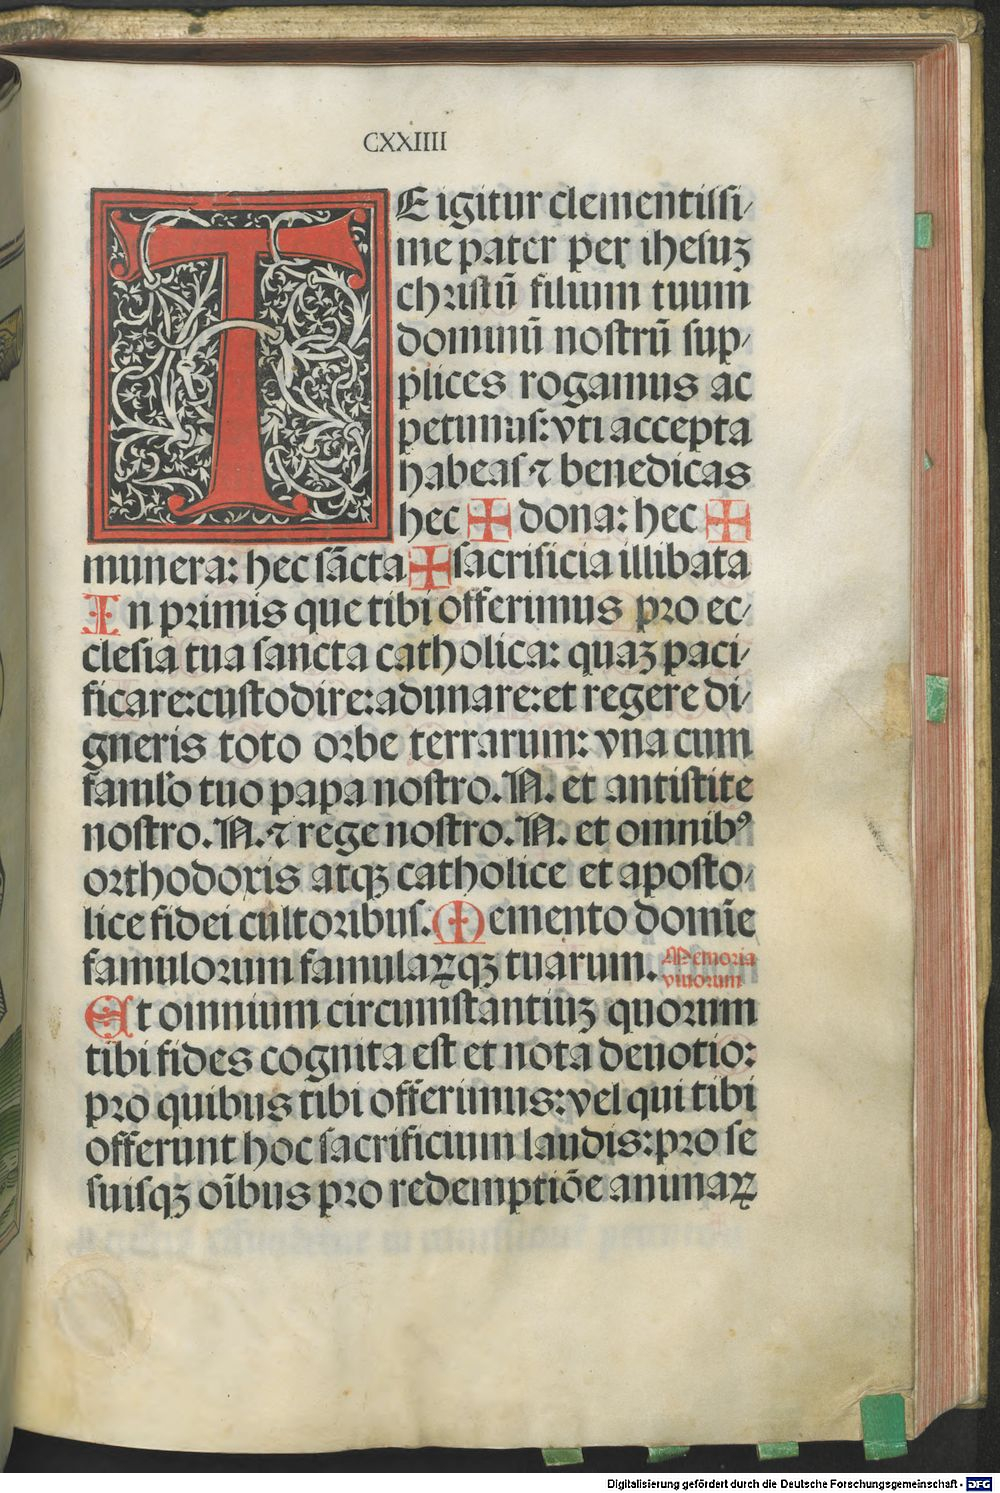 CXXIIII
TE igitur clementissi/
me pater per ihesuꝫ
christū filium tuum
dominū nostrū sup/
plices rogamus ac
petimus: vti accepta
habeas ⁊ benedicas
hec ✠ dona: hec ✠
munera: hec sācta ✠ sacrificia illibata
In primis que tibi offerimus pro ec/
clesia tua sancta catholica: quaꝫ paci/
ficare: custodire: adunare: et regere di/
gneris toto orbe terrarum: vna cum
famlo tuo papa nostro. N. et antistite
nostro. N. ⁊ rege nostro. N. et omnibꝰ
orthodoxis atqꝫ catholice et aposto/
lice fidei cultoribus. Memento domīe
famulorum famulaꝝqꝫ tuarum. Memoria
viuorum
Et omnium circumstantiuꝫ quorum
tibi fides cognita est et nota deuotio:
pro quibus tibi offerimus: vel qui tibi
offerunt hoc sacrificium laudis: pro se
suisqꝫ oībus pro redemptiōe animaꝝ
Digitalisierung gefördert durch die Deutsche Forschungsgemeinschaft - DFG